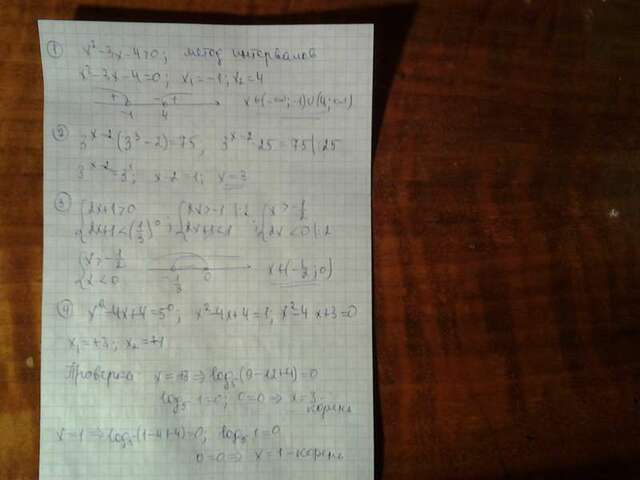 ① x²-3x-4>0; метод интервалов
x²-3x-4=0; x₁=-1; x₂=4
+ - +
-1 4 x∈(-∞;-1)∪(4;+∞)
② 3ˣ⁻²(3³-2)=75, 3ˣ⁻²·25=75|:25
3ˣ⁻²=3¹; x-2=1; x=3
③ {2x+1>0 {2x>-1|:2 {x>-1/2
{2x+1<(1/3)⁰; {2x+1<1; {2x<0|:2
{x>-1/2
{x<0 0 x∈(-1/2;0)
④ x²-4x+4=5⁰; x²-4x+4=1, x²-4x+3=0
x₁=+3; x₂=+1
Проверка: x=3⇒log₅(9-12+4)=0
log₅1=0; 0=0⇒x=3-
корень
x=1⇒log₅(1-4+4)=0; log₅1=0
0=0⇒ x=1-корень